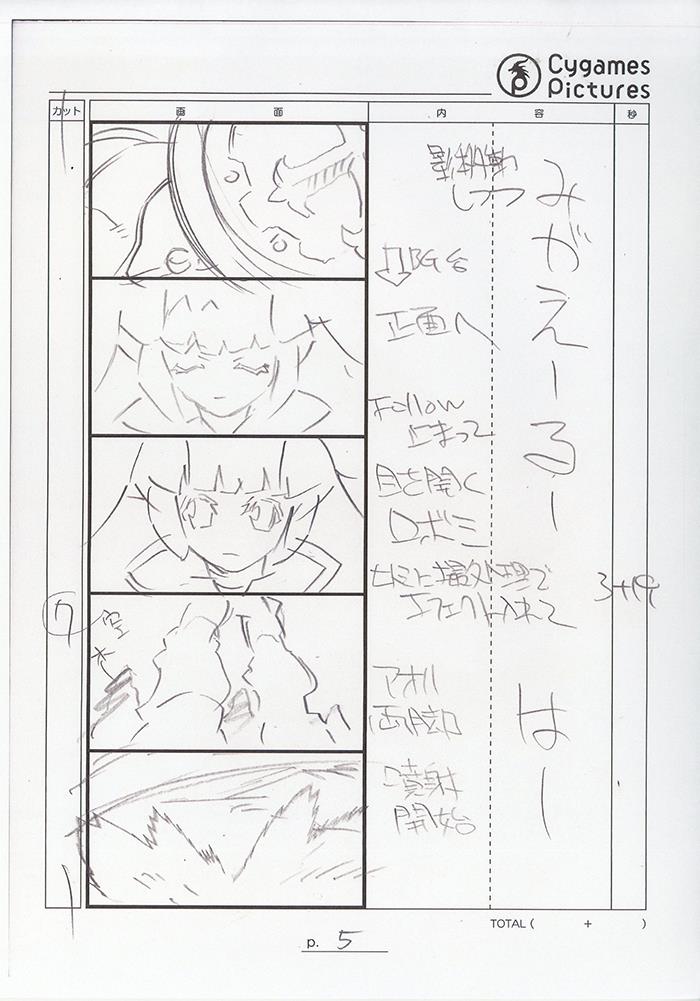 Cygames
Pictures
カット
画面
内容
秒
しつつ
みがえーるー
BG
正画へ
Follow
止まって
目を開く
ロボミ
ヒトミに撮処理で
エフェクト入れて
3+19
7
空
アオリ
両脚
はー
噴射
開始
TOTAL ( + )
p. 5